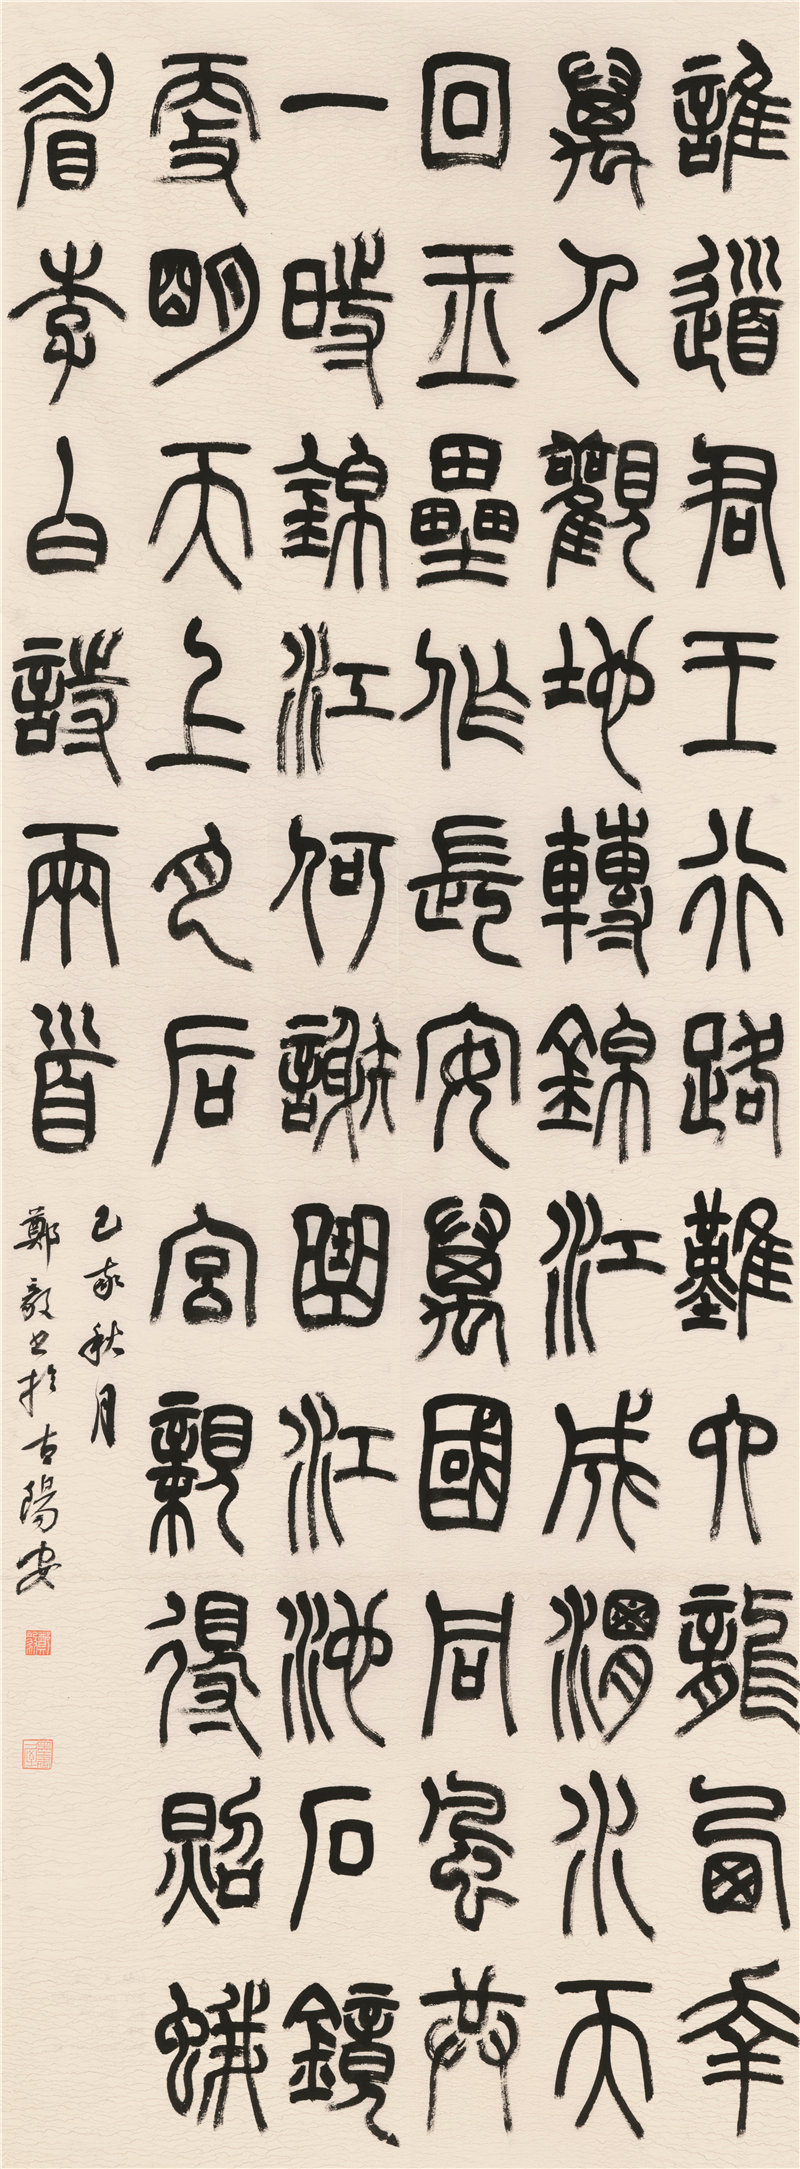 誰道君王行路難六龍西幸
萬人觀地轉錦江成渭水天
回玉壘作長安萬國同風共
一時錦江何謝曲江池石鏡
更明天上月后宮親得照蛾
眉李白詩兩首
己亥秋月
鄭毅書於古陽安